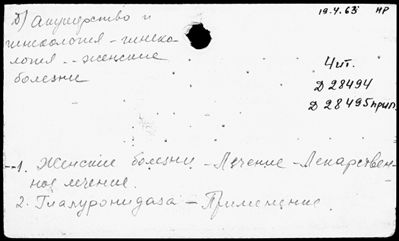 д) Акушерство и
гинекология - гинеко-
логия -- женские
болезни
19.4.63 НР
Чит.
Д 28494
Д 28495 прил.
1. Женские болезни - Лечение - Лекарствен-
ное лечение.
2. Гиалуронидаза - Применение